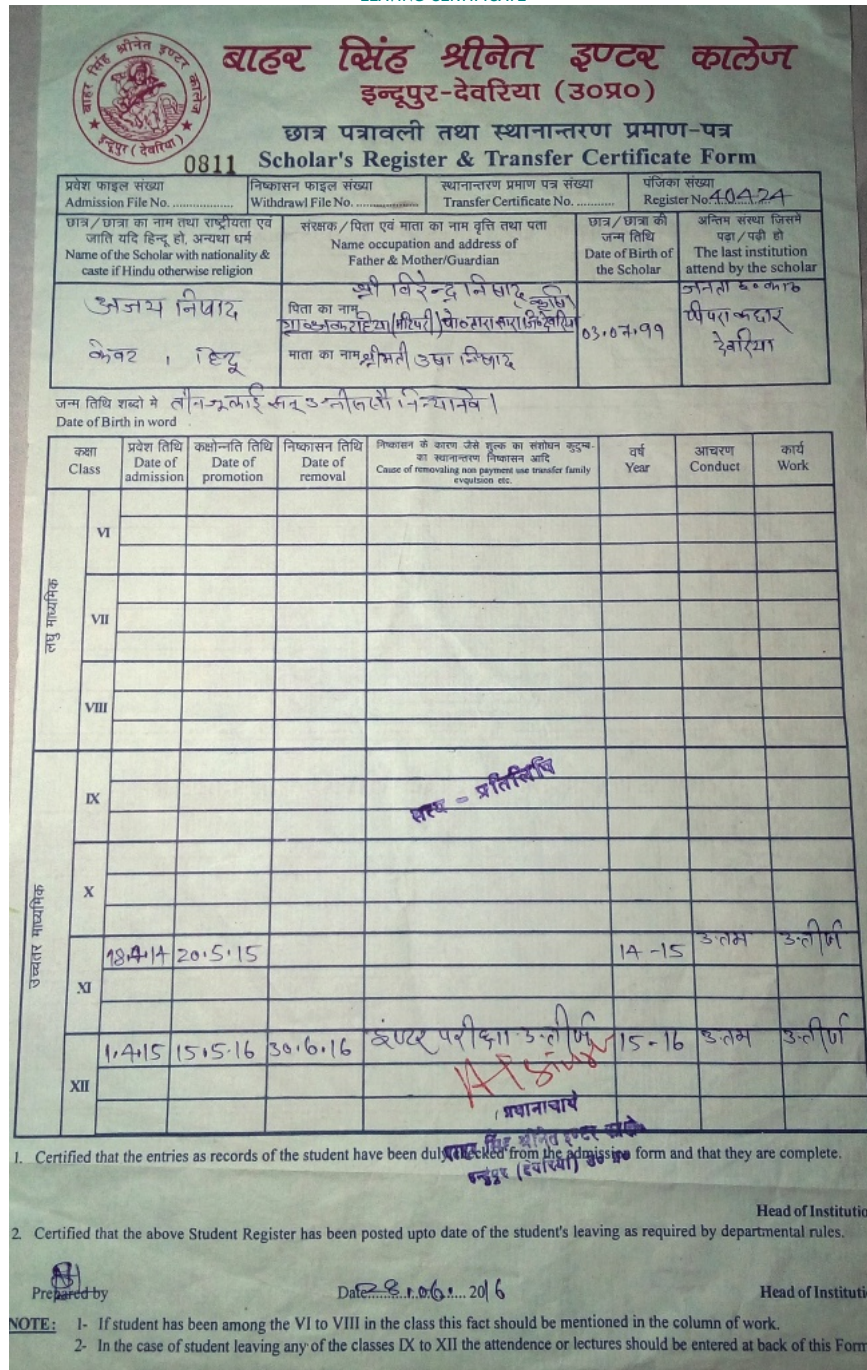 LEAVING CERTIFICATE
बाहर सिंह श्रीनेत इण्टर कालेज
इन्दूपुर-देवरिया (उ०प्र०)
छात्र पत्रावली तथा स्थानान्तरण प्रमाण-पत्र
0811 Scholar's Register & Transfer Certificate Form
बाहर सिंह श्रीनेत इण्टर कालेज
इन्दूपुर (देवरिया)
प्रवेश फाइल संख्या
Admission File No. ..................
निष्कासन फाइल संख्या
Withdrawl File No. ..................
स्थानान्तरण प्रमाण पत्र संख्या
Transfer Certificate No. ...........
पंजिका संख्या
Register No. 40424
छात्र / छात्रा का नाम तथा राष्ट्रीयता एवं
जाति यदि हिन्दू हो, अन्यथा धर्म
Name of the Scholar with nationality &
caste if Hindu otherwise religion
संरक्षक / पिता एवं माता का नाम वृत्ति तथा पता
Name occupation and address of
Father & Mother/Guardian
छात्र / छात्रा की
जन्म तिथि
Date of Birth of
the Scholar
अन्तिम संस्था जिसमे
पढ़ा / पढ़ी हो
The last institution
attend by the scholar
अजय निषाद
केवट , हिन्दू
श्री विरेन्द्र निषाद कृषि
पिता का नाम
माता का नाम श्रीमती उषा निषाद
03.07.99
जनता इ० का०
पीपरा कछार
देवरिया
जन्म तिथि शब्दो मे तीन जूलाई सन् उन्नीस सौ निन्यानवे
Date of Birth in word
कक्षा
Class
प्रवेश तिथि
Date of
admission
कक्षोन्नति तिथि
Date of
promotion
निष्कासन तिथि
Date of
removal
निष्कासन के कारण जैसे शुल्क का संशोधन कुटुम्ब-
का स्थानान्तरण निष्कासन आदि
Cause of removaling non payment use transfer family
evqulsion etc.
वर्ष
Year
आचरण
Conduct
कार्य
Work
लघु माध्यमिक
VI
VII
VIII
उच्चतर माध्यमिक
IX
सत्य - प्रतिलिपि
X
XI 18.4.14 20.5.15 14-15 उत्तम उत्तीर्ण
XII 1.4.15 15.5.16 30.6.16 इण्टर परीक्षा उत्तीर्ण 15-16 उत्तम उत्तीर्ण
प्रधानाचार्य
बाहर सिंह श्रीनेत इण्टर कालेज
इन्दूपुर (देवरिया) उ० प्र०
1. Certified that the entries as records of the student have been duly checked from the admission form and that they are complete.
Head of Institutio
2. Certified that the above Student Register has been posted upto date of the student's leaving as required by departmental rules.
Prepared by Date 28.06. 2016 Head of Instituti
NOTE: 1- If student has been among the VI to VIII in the class this fact should be mentioned in the column of work.
2- In the case of student leaving any of the classes IX to XII the attendence or lectures should be entered at back of this Form